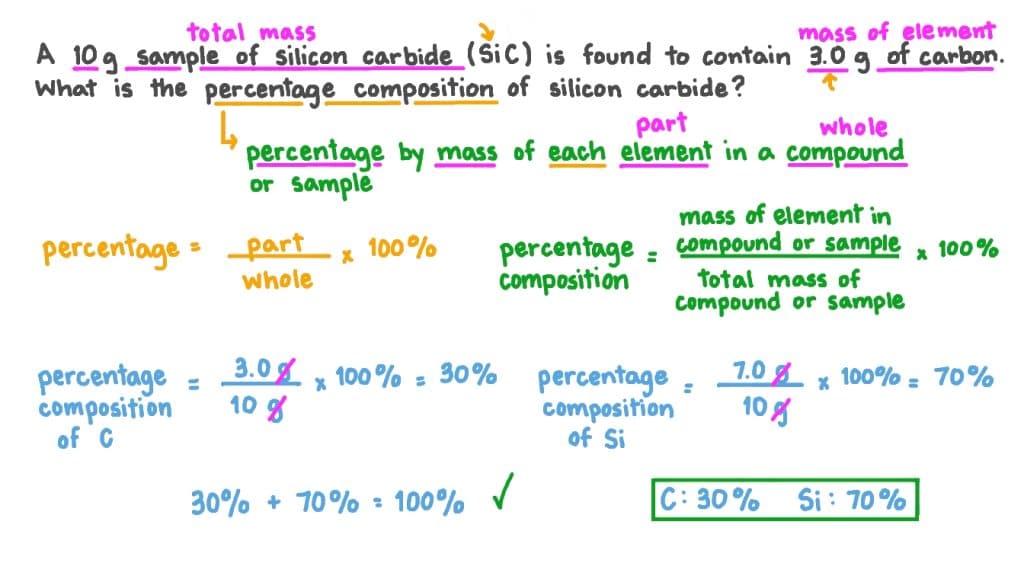 total mass
mass of element
A 10 g sample of silicon carbide (SiC) is found to contain 3.0 g of carbon.
What is the percentage composition of silicon carbide?
part
whole
percentage by mass of each element in a compound
or sample
percentage = part / whole x 100%
percentage composition = mass of element in compound or sample / total mass of compound or sample x 100%
percentage composition of C = 3.0 g / 10 g x 100% = 30%
percentage composition of Si = 7.0 g / 10 g x 100% = 70%
30% + 70% = 100% ✓
C: 30% Si: 70%